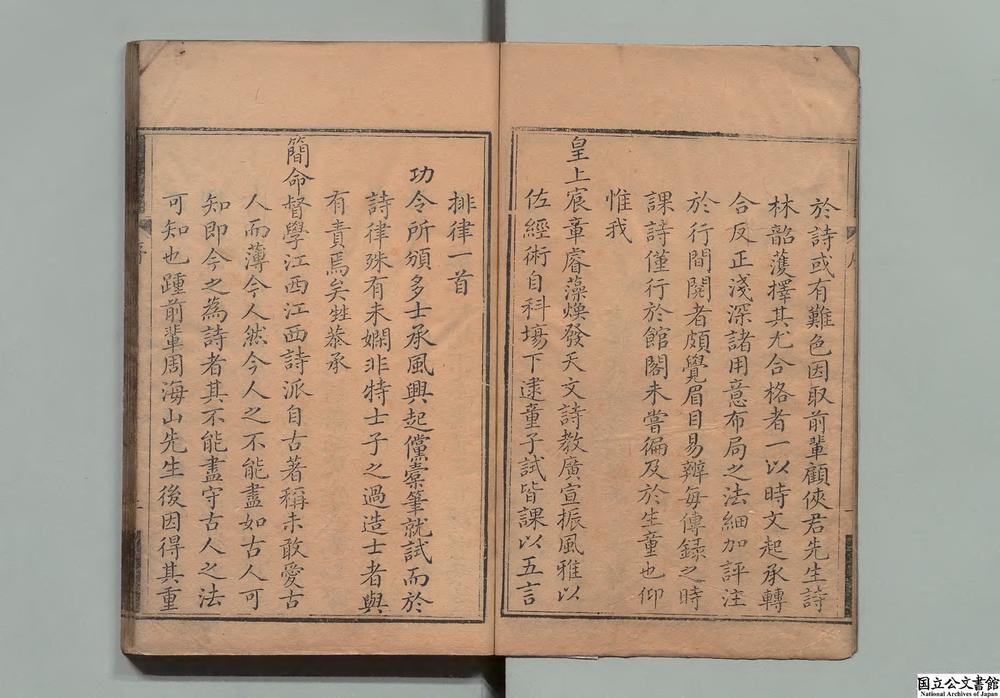 於詩或有難色因取前輩顧俠君先生詩
林韶濩擇其尤合格者一以時文起承轉
合反正淺深諸用意布局之法細加評注
於行間閱者頗覺眉目易辨每傳録之時
課詩僅行於館閣未嘗徧及於生童也仰
惟我
皇上宸章睿藻煥發天文詩教廣宣振風雅以
佐經術自科場下逮童子試皆課以五言
排律一首
功令所頒多士承風興起儻橐筆就試而於
詩律殊有未嫻非特士子之過造士者與
有責焉矣甡恭承
簡命督學江西江西詩派自古著稱未敢愛古
人而薄今人然今人之不能盡如古人可
知即今之為詩者其不能盡守古人之法
可知也踵前輩周海山先生後因得其重
序
国立公文書館
National Archives of Japan